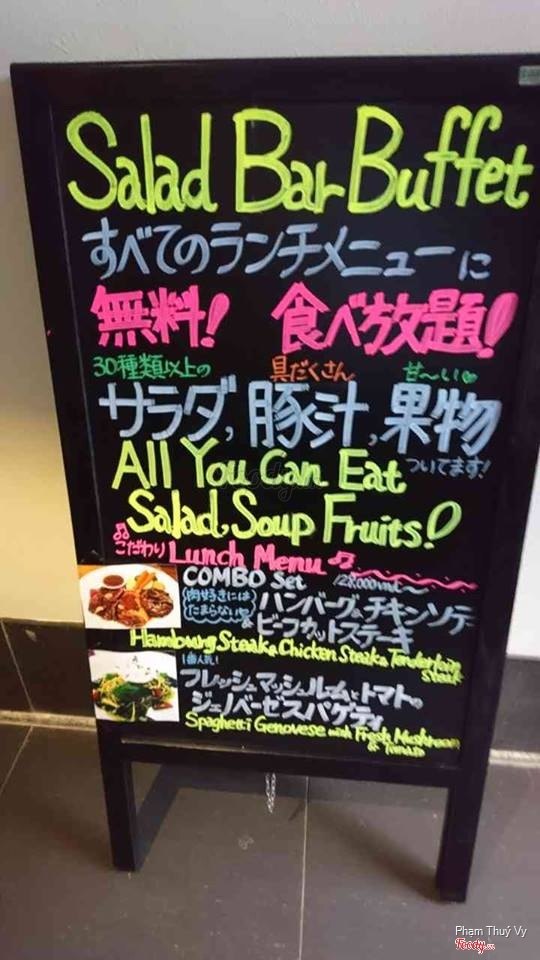 Salad Bar Buffet
すべてのランチメニューに
無料! 食べ放題!
30種類以上の 具だくさん 甘〜い♥
サラダ, 豚汁, 果物
ついてます!
All You Can Eat
Salad, Soup Fruits!
こだわり Lunch Menu
COMBO Set
肉好きには
たまらない♥
ハンバーグ&チキンソテー
&ビーフカットステーキ
Hamburg Steak & Chicken Steak & Tenderloin
Steak
1番人気!
フレッシュマッシュルームとトマトの
ジェノバーゼスパゲティ
Spaghetti Genovese with Fresh Mushroom
& Tomato
Phạm Thuý Vy
Foody.vn